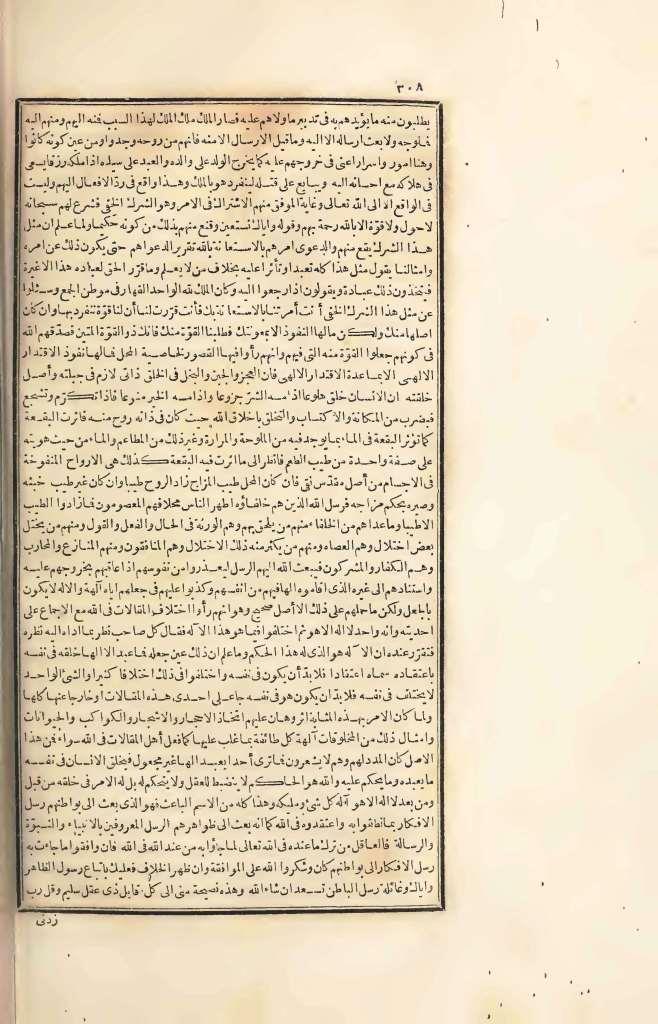 ٣٠٨
يطلبون منه ما يؤيدهم به فى تدبير ما ولاهم عليه فصار الملك ملك الملك لهذا السبب فمنه اليهم ومنهم اليه
فلوجه ولا بعث ارساله الا اليه وما قبل الارسال الا منه فانهم من روحه وجدوا ومن عين كونه كانوا
وهنا أمور واسرار أعنى فى خروجهم عليه كما يخرج الولد على والده والعبد على سيده اذا ملكه رزقا يسعى
فى هلاكه مع احسانه اليه ويبايع على قتله لينفرد هو بالملك وهذا واقع فى ردّ الافعال اليهم وليست
فى الواقع الا الى الله تعالى وغاية الموفق منهم الاشتراك فى الامر وهو الشرك الخفى فشرع لهم سبحانه
لاحول ولا قوّة الا بالله رحمة بهم وقوله واياك نستعين وقنع منهم بذلك من كونه حكيما ولما علم ان مثل
هذا الشرك يقع منهم والدعوى أمرهم بالاستعانة بالله تقرير الدعواهم حتى يكون ذلك عن أمره
وامثالنا يقول مثل هذا كله تعبدا وتأثرا عليه بخلاف من لا يعلم وما قرر الحق لعباده هذا الا غيرة
فيتخذون ذلك عبادة ويقولون اذا رجعوا اليه وكان الملك لله الواحد القهار فى موطن الجمع وسئلوا
عن مثل هذا الشرك الخفى أنت أمرتنا بالاستعانة بك فأنت قررت لنا أن لنا قوّة ننفرد بها وان كان
أصلها منك ولكن مالها النفوذ الا بمعونتك فطلبنا القوّة منك فانك ذو القوّة المتين فصدّقهم الله
فى كونهم جعلوا القوّة منه التى فيهم وانهم رأوا فيها القصور لخاصية المحل فمالها نفوذ الاقتدار
الالهى الا بمساعدة الاقتدار الالهى فان العجز والجبن والبخل فى الخلق ذاتى لازم فى جبلته وأصل
خلقته ان الانسان خلق هلوعا اذا مسه الشرّ جزوعا واذا مسه الخير منوعا فاذا تكرّم وتشجع
فيضرب من المكانة والاكتساب والتخلق باخلاق الله حيث كان فى ذاته روح منه فاثرت البقعة
كما تؤثر البقعة فى الماء بما يوجد فيه من الملوحة والمرارة وغير ذلك من المطاعم والماء من حيث هويته
على صفة واحدة من طيب الطعم فانظر الى ما أثرت فيه البقعة كذلك هى الارواح المنفوخة
فى الاجسام من أصل مقدّس نقى فان كان المحل طيب المزاج زاد الروح طيبا وان كان غير طيب خبثه
وصيره بحكم مزاجه فرسل الله الذين هم خلفاؤه أطهر الناس محلا فهم المعصومون فما زادوا الطيب
الا طيبا وما عداهم من الخلفاء منهم من يلحق بهم وهم الورثة فى الحال والفعل والقول ومنهم من يختل
بعض اختلال وهم العصاة ومنهم من يكثر منه ذلك الاختلال وهم المنافقون ومنهم المنازع والمحارب
وهم الكفار والمشركون فيبعث الله اليهم الرسل ليعذروا من نفوسهم اذا عاقبهم بخروجهم عليه
واستنادهم الى غيره الذى أقاموه الها فيهم من أنفسهم وكذبوا عليهم فى جعلهم اياه آلهة والاله لا يكون
بالجعل ولكن ما حملهم على ذلك الا أصل صحيح وهو انهم رأوا اختلاف المقالات فى الله مع الاجماع على
أحديته وانه واحد لا اله الا هو ثم اختلفوا فيما هو هذا الاله فقال كل صاحب نظر بما أداه اليه نظره
فتقرّر عنده ان الاله هو الذى له هذا الحكم وما علم ان ذلك عين جعله فما عبد الا الها خلقه فى نفسه
باعتقاده سماه اعتقادا فلا بدّ أن يكون فى نفسه واختلفوا فى ذلك اختلافا كثيرا والشئ الواحد
لا يختلف فى نفسه فلا بدّ ان يكون هو فى نفسه جاعلى احدى هذه المقالات أو خارجا عنها كلها
ولما كان الامر بهذه المثابة اثر وهان عليهم اتخاذ الاحجار والاشجار والكواكب والحيوانات
وامثال ذلك من المخلوقات آلهة كل طائفة بما غلب عليها كما فعل أهل المقالات فى الله سواء فمن هذا
الاصل كان المدد لهم وهم لا يشعرون فما ترى أحدا يعبد الها غير مجعول فيخلق الانسان فى نفسه
ما يعبده وما يحكم عليه والله هو الحاكم لا ينضبط للعقل ولا يتحكم له بل له الامر فى خلقه من قبل
ومن بعد لا اله الا هو اله كل شئ ومليكه وهذا كله من الاسم الباعث فهو الذى بعث الى بواطنهم رسل
الافكار بما نطقوا به واعتقدوه فى الله كما انه بعث الى ظواهرهم الرسل المعروفين بالانبياء والنبوّة
والرسالة فالعاقل من ترك ما عنده فى الله تعالى لما جاؤا به من عند الله فى الله فان وافقوا ما جاءت به
رسل الافكار الى بواطنهم كان وشكروا الله على الموافقة وان ظهر الخلاف فعليك باتباع رسول الظاهر
واياك وغائلة رسل الباطن تسعد ان شاء الله وهذه نصيحة منى الى كل قابل ذى عقل سليم وقل رب
زدنى